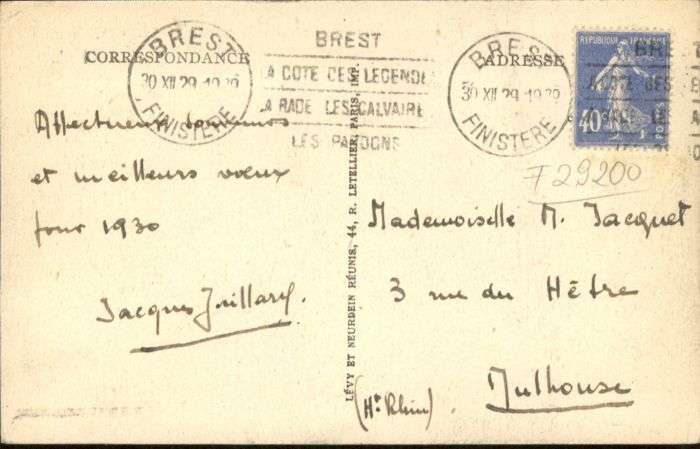 CORRESPONDANCE
BREST
30 XII 29 19
FINISTERE
BREST
LA COTE DES LEGENDES
LA RADE LES CALVAIRE
LES PARDONS
ADRESSE
BREST
30 XII 29 1930
FINISTERE
REPUBLIQUE FRANCAISE
40c
POSTES
F 29200
Affectueux
et meilleurs vœux
pour 1930
Jacques Juillard.
LÉVY ET NEURDEIN RÉUNIS, 44, R. LETELLIER, PARIS, IMP.
Mademoiselle M. Jacquet
3 rue du Hêtre
Mulhouse
(Ht Rhin).